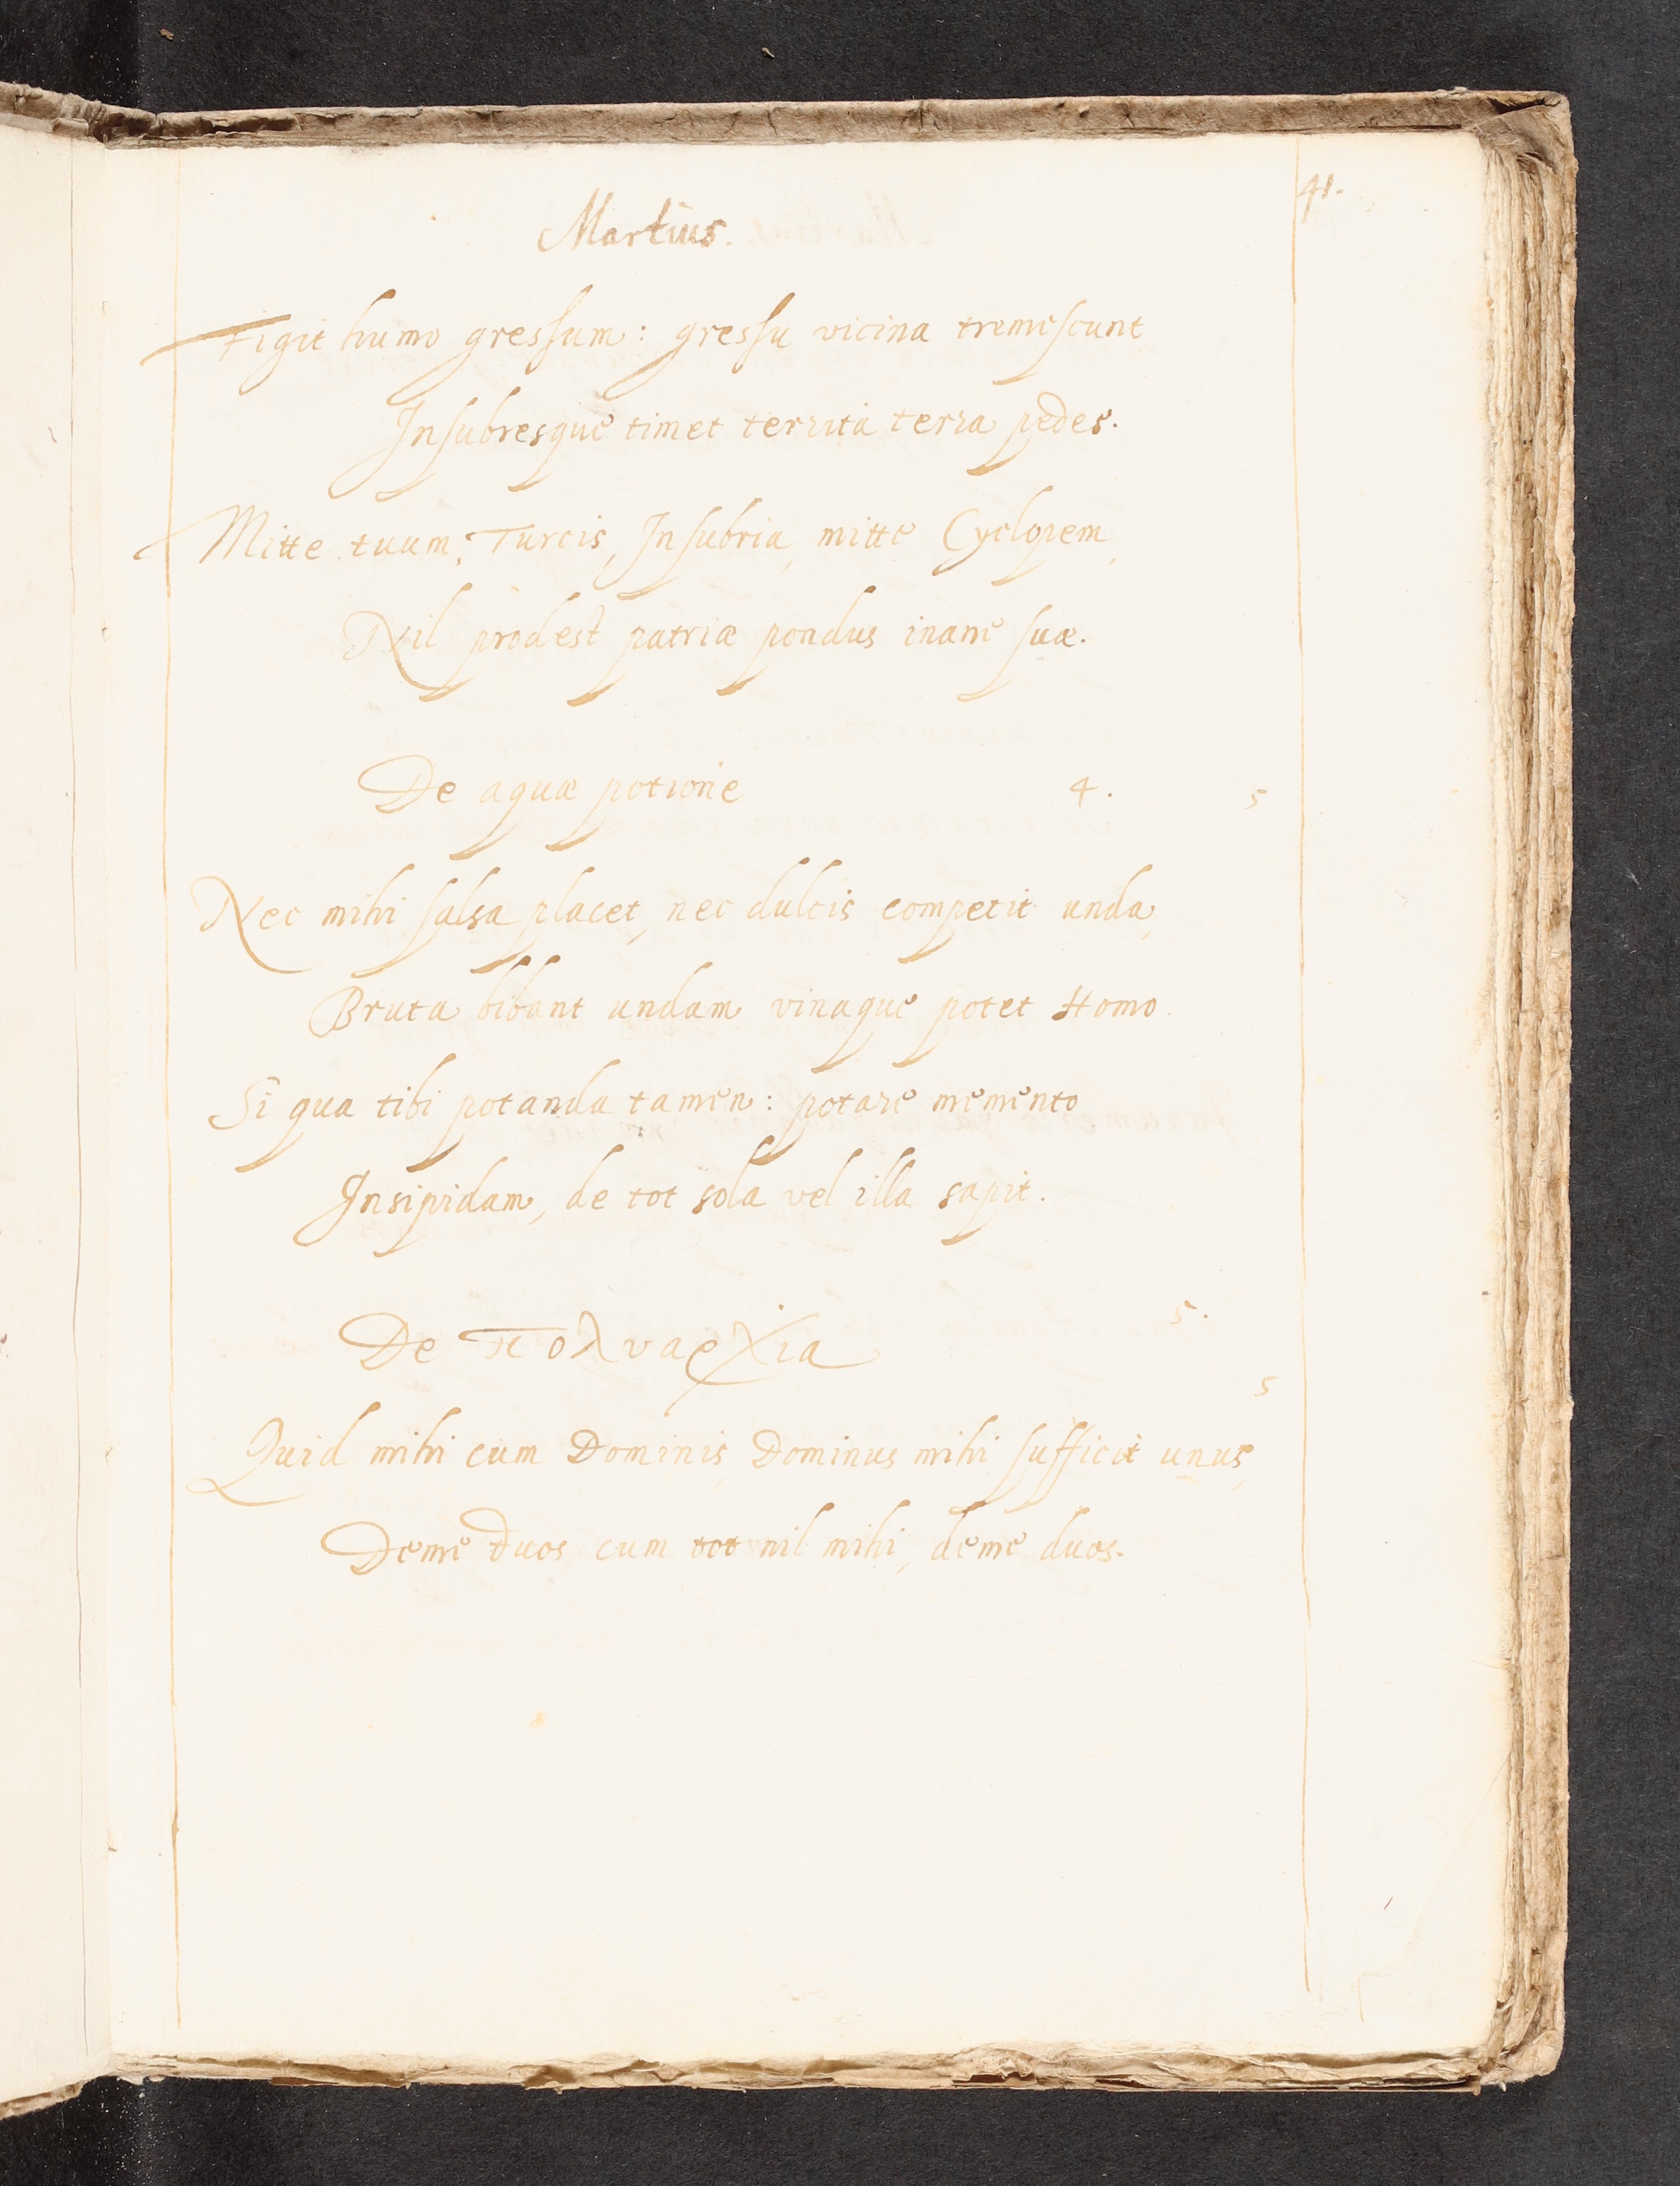 41.
Martius.
Figit humo gressum: gressu vicina tremescunt
Insubresque timet territa terra pedes.
Mitte tuum, Turcis, Insubria, mitte Cyclopem,
Nil prodest patriæ pondus inane suæ.
De aquæ potione 4. 5
Nec mihi salsa placet, nec dulcis competit unda,
Bruta bibant undam vinaque potet Homo.
Si qua tibi potanda tamen: potare memento
Insipidam, de tot sola vel illa sapit.
De πολυαρχια 5.
5
Quid mihi cum Dominis, Dominus mihi sufficit unus,
Deme duos, cum tot nil mihi, deme duos.